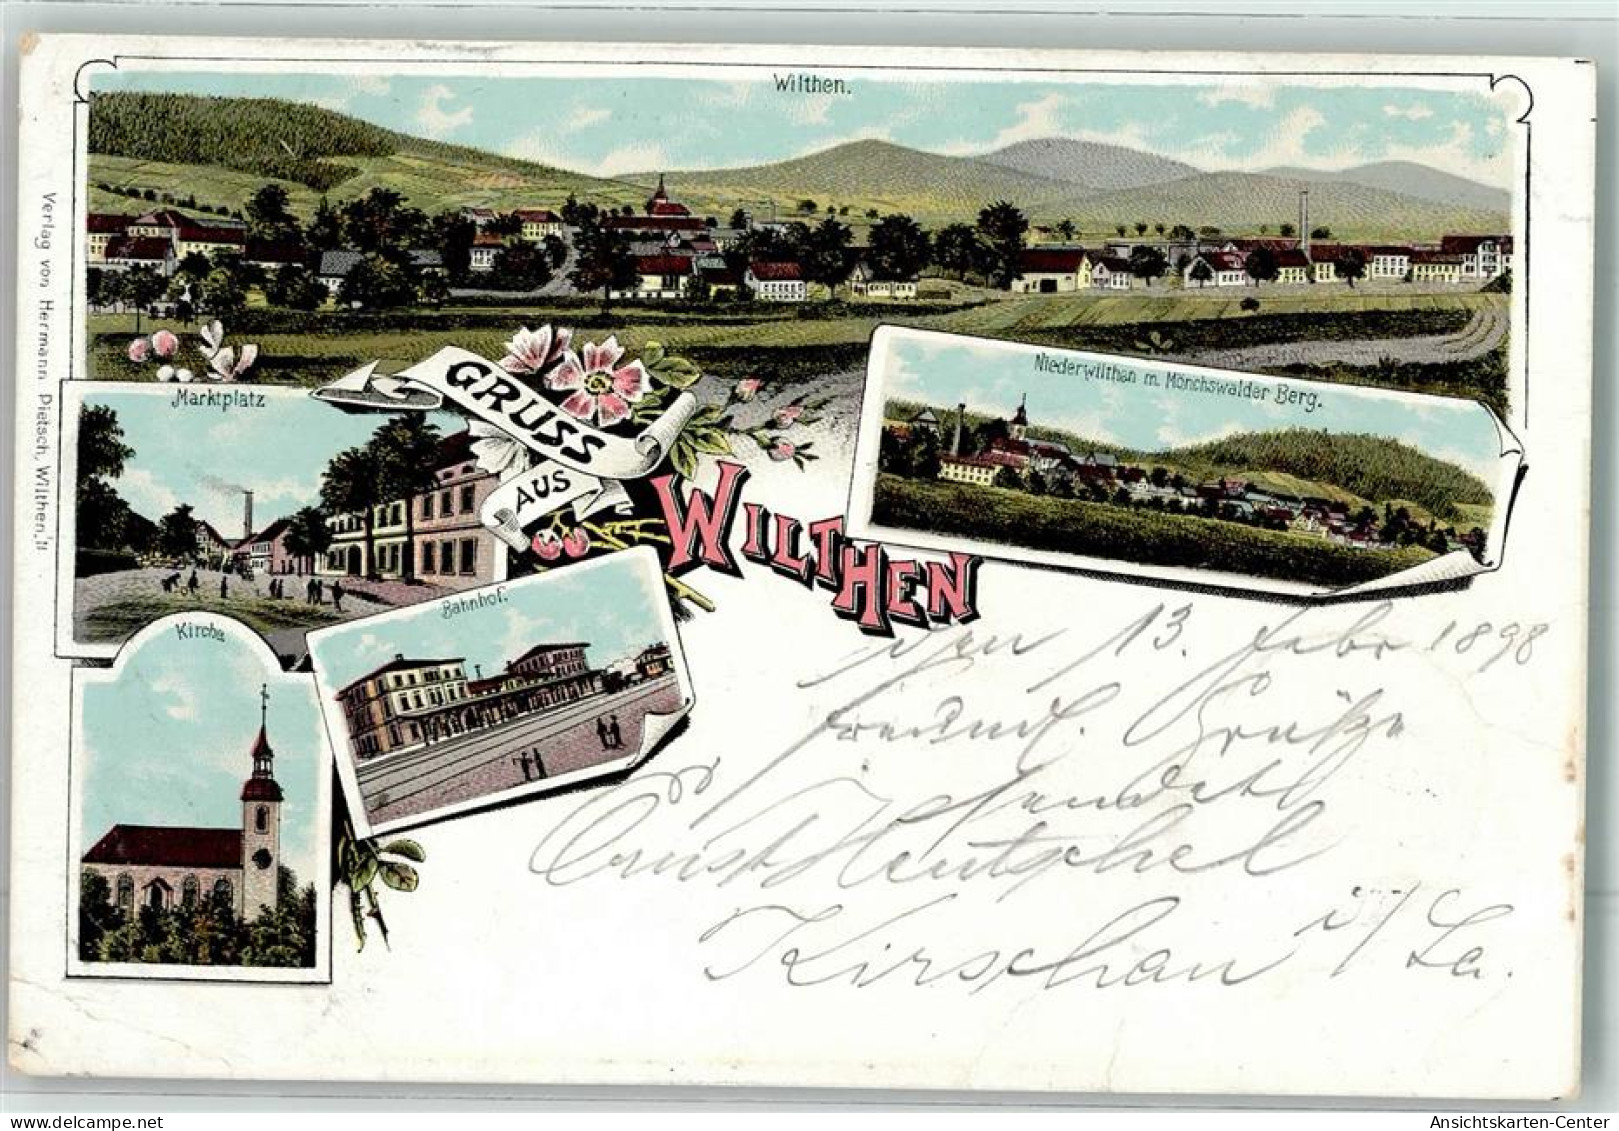 Wilthen.
Verlag von Hermann Dietsch, Wilthen.
Marktplatz
GRUSS
AUS
WILTHEN
Niederwilthen m. Mönchswalder Berg.
Kirche
Bahnhof.
den 13. Febr 1898
Grüße
sendet
Ernst Hentschel
Kirschau i/ Sa.
Ansichtskarten-Center